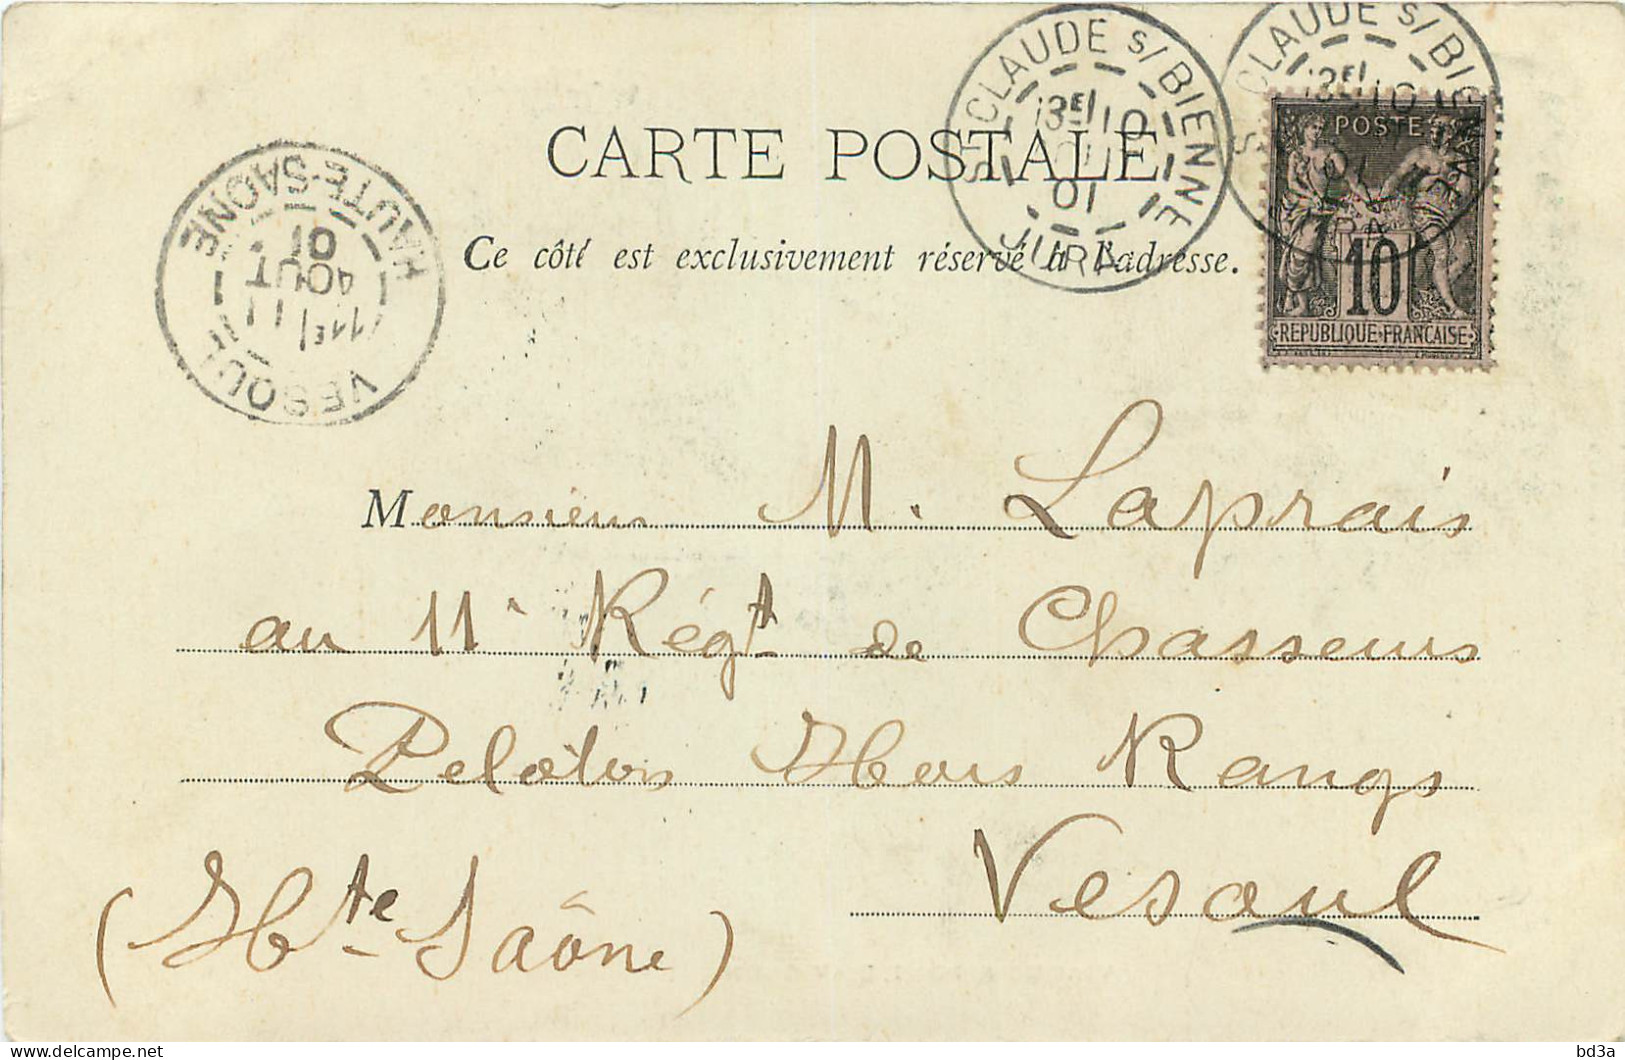 ST CLAUDE S/ BIENNE
13E/ 10
01
JURA
CLAUDE S/ BIENNE
13E/ 10
POSTE
10
REPUBLIQUE FRANÇAISE
CARTE POSTALE
Ce côté est exclusivement réservé à l'adresse.
VESOUL
11E/ 11
AOUT
01
HAUTE-SAONE
Monsieur M. Laprais
au 11e Régt de Chasseurs
Peloton Hors Rangs
Vesoul
(Hte Saône)
bd3a